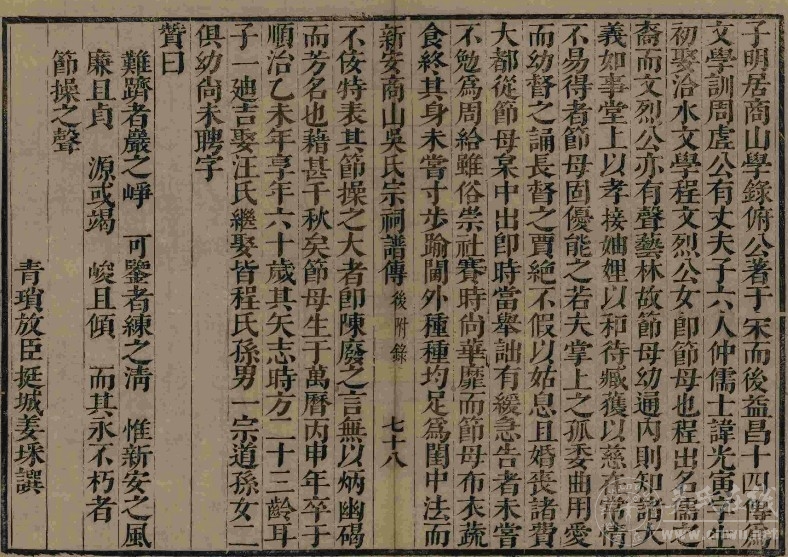 子明居商山學錄俯公著于宋而後益昌十四傳爲
文學訓周虛公有丈夫子六人仲儒士諱光寅字
初娶洽水文學程文烈公女卽節母也程出名儒之
裔而文烈公亦有聲藝林故節母幼通內則知諸大
義如事堂上以孝接妯娌以和待臧獲以慈在常情
不易得者節母固優能之若夫掌上之孤委曲用愛
而幼督之誦長督之賈絶不假以姑息且婚喪諸費
大都從節母槖中出卽時當舉詘有緩急告者未嘗
不勉爲周給雖俗崇社賽時尚華靡而節母布衣蔬
食終其身未嘗寸步踰閫外種種均足爲閨中法而
新安商山吳氏宗祠譜傳 後附錄 七十八
不佞特表其節操之大者卽陳廢之言無以炳幽碣
而芳名也藉甚千秋矣節母生于萬曆丙申年卒于
順治乙未年享年六十歲其矢志時方二十三齡耳
子一廸吉娶汪氏繼娶皆程氏孫男一宗道孫女二
俱幼尚未聘字
贊曰
難躋者巖之崢 可鑒者練之淸 惟新安之風
廉且貞 源或竭 峻且傾 而其永不朽者
節操之聲
青瑣放臣挺城姜埰譔